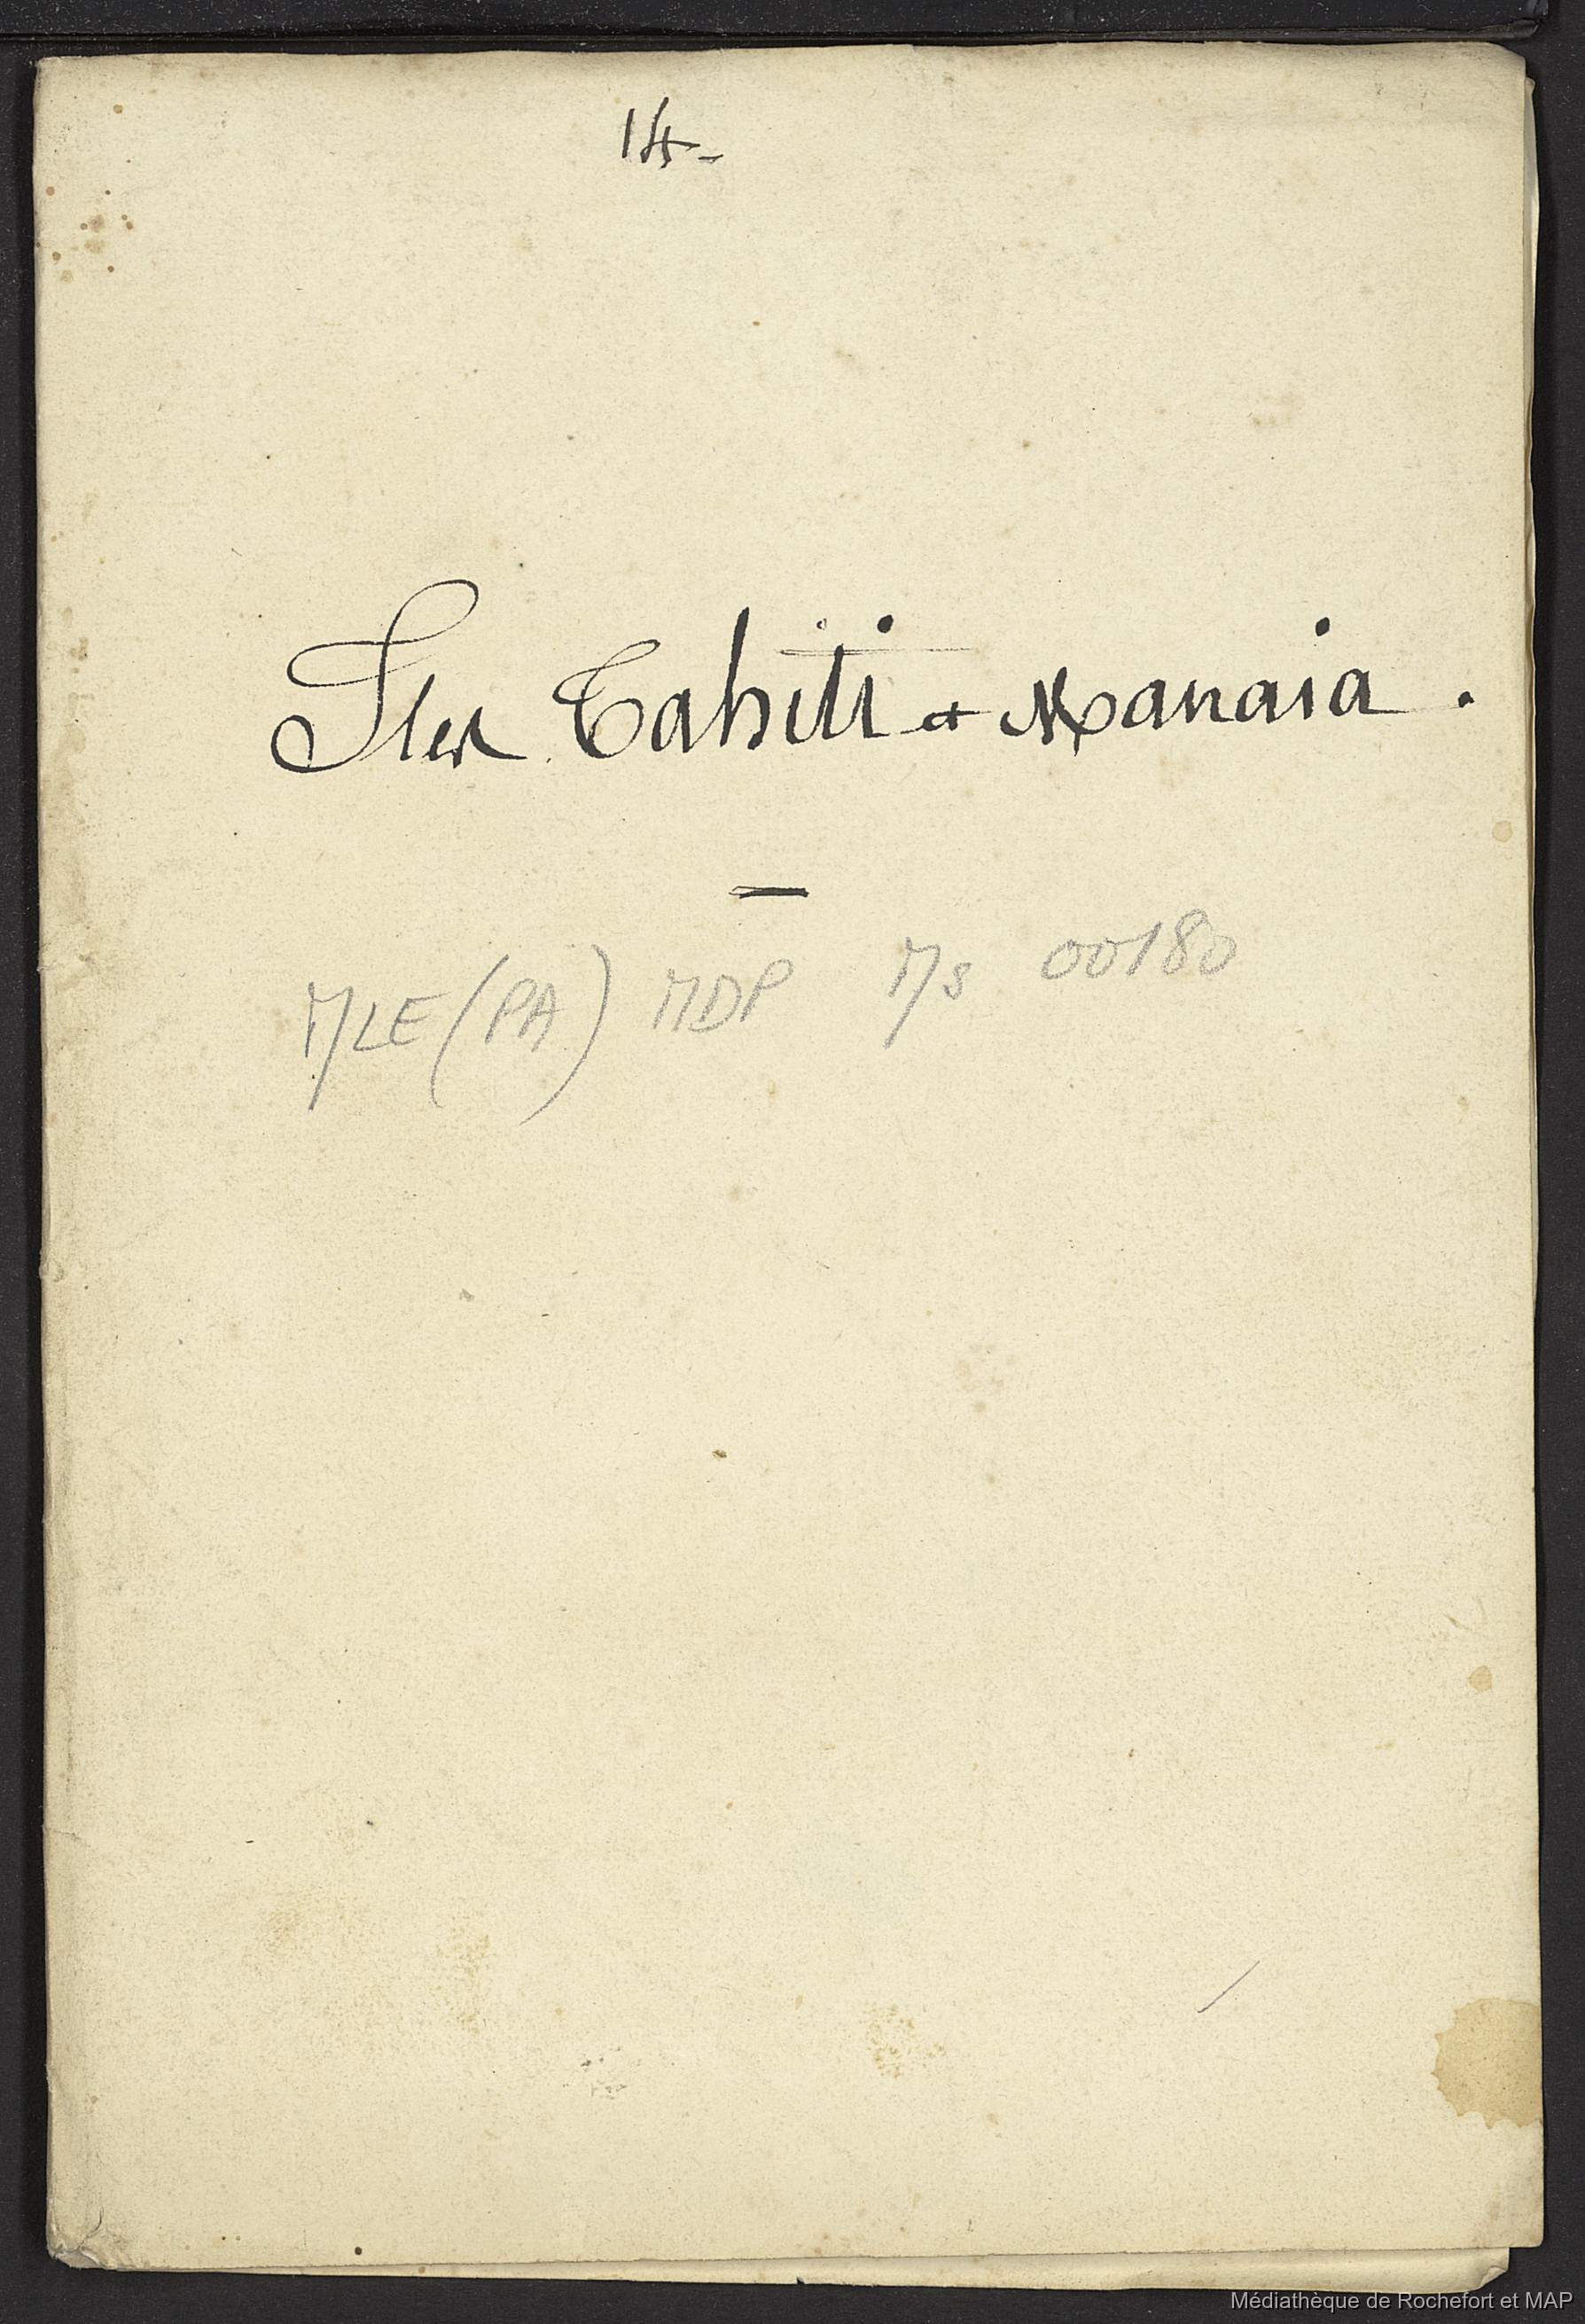 14-
Iles Tahiti et Manaia .
MLE (PA) MDP Ms 00180
Médiathèque de Rochefort et MAP